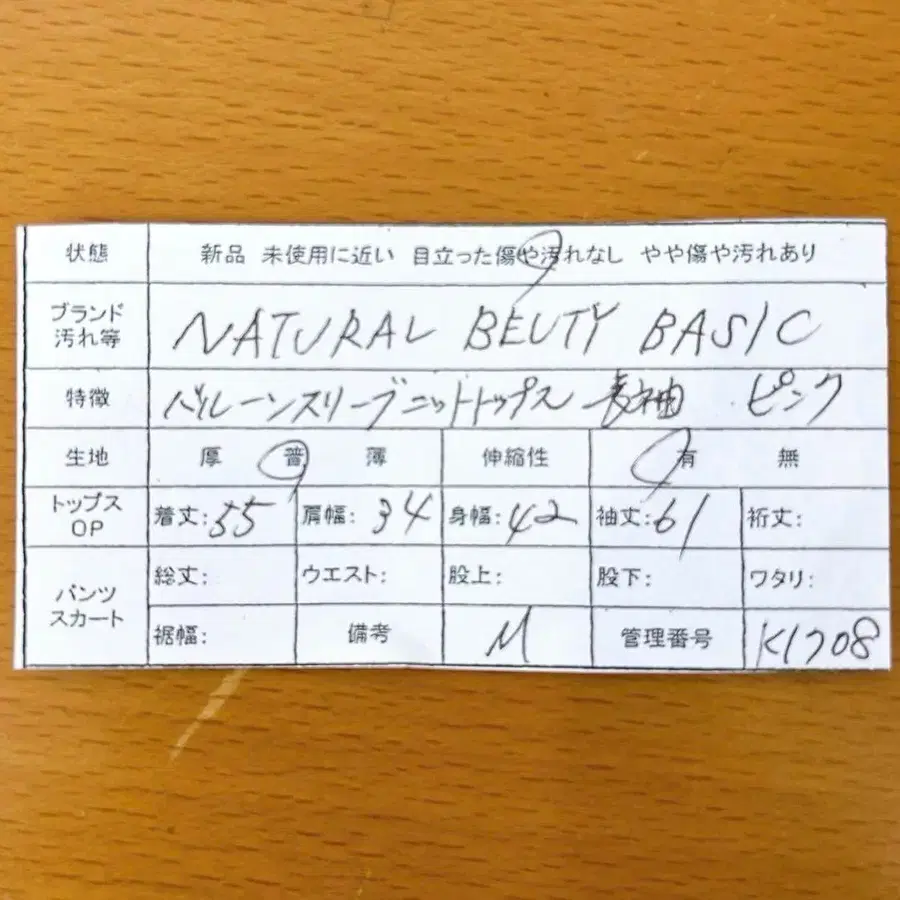 状態 新品 未使用に近い 目立った傷や汚れなし やや傷や汚れあり
ブランド
汚れ等
NATURAL BEUTY BASIC
特徴 バルーンスリーブニットトップス 長袖 ピンク
生地 厚 普 薄 伸縮性 有 無
トップス
OP
着丈:55 肩幅:34 身幅:42 袖丈:61 裄丈:
パンツ
スカート
総丈: ウエスト: 股上: 股下: ワタリ:
裾幅: 備考 M 管理番号 K1708